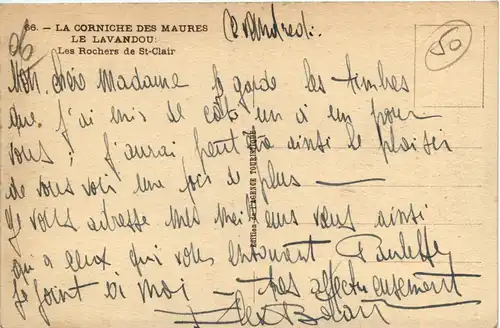 66. - LA CORNICHE DES MAURES
LE LAVANDOU:
Les Rochers de St-Clair
Vendredi.
50
Mon chère Madame Je garde les timbres
que j'ai mis de côté un à un pour
vous; j'aurai peut ainsi le plaisir
de vous voir une fois de plus —
Je vous adresse mes meilleurs vœux ainsi
qu'à ceux qui vous entourent Paulette
se joint à moi — très affectueusement
Editions de l'AGENCE TOURISTIQUE